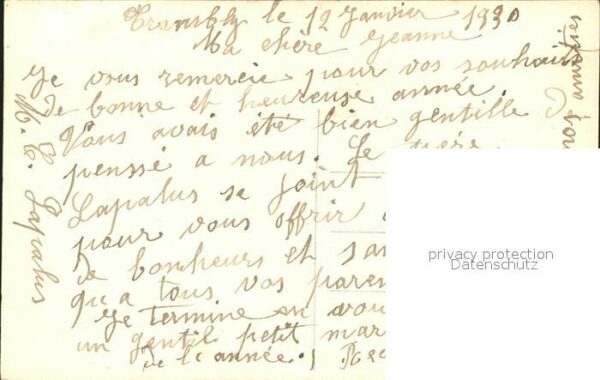 Trambly le 12 Janvier 1930
Ma chère Jeanne
Je vous remercie pour vos souhaits
de bonne et heureuse année.
Vous avais été bien gentille d
pensé a nous. Le père
Lapalus se joint
pour vous offrir
de bonheurs et san
qu'a tous vos paren
Je termine en vou
un gentil petit mar
de l'année.
M. C. Lapalus
amitiés
privacy protection
Datenschutz